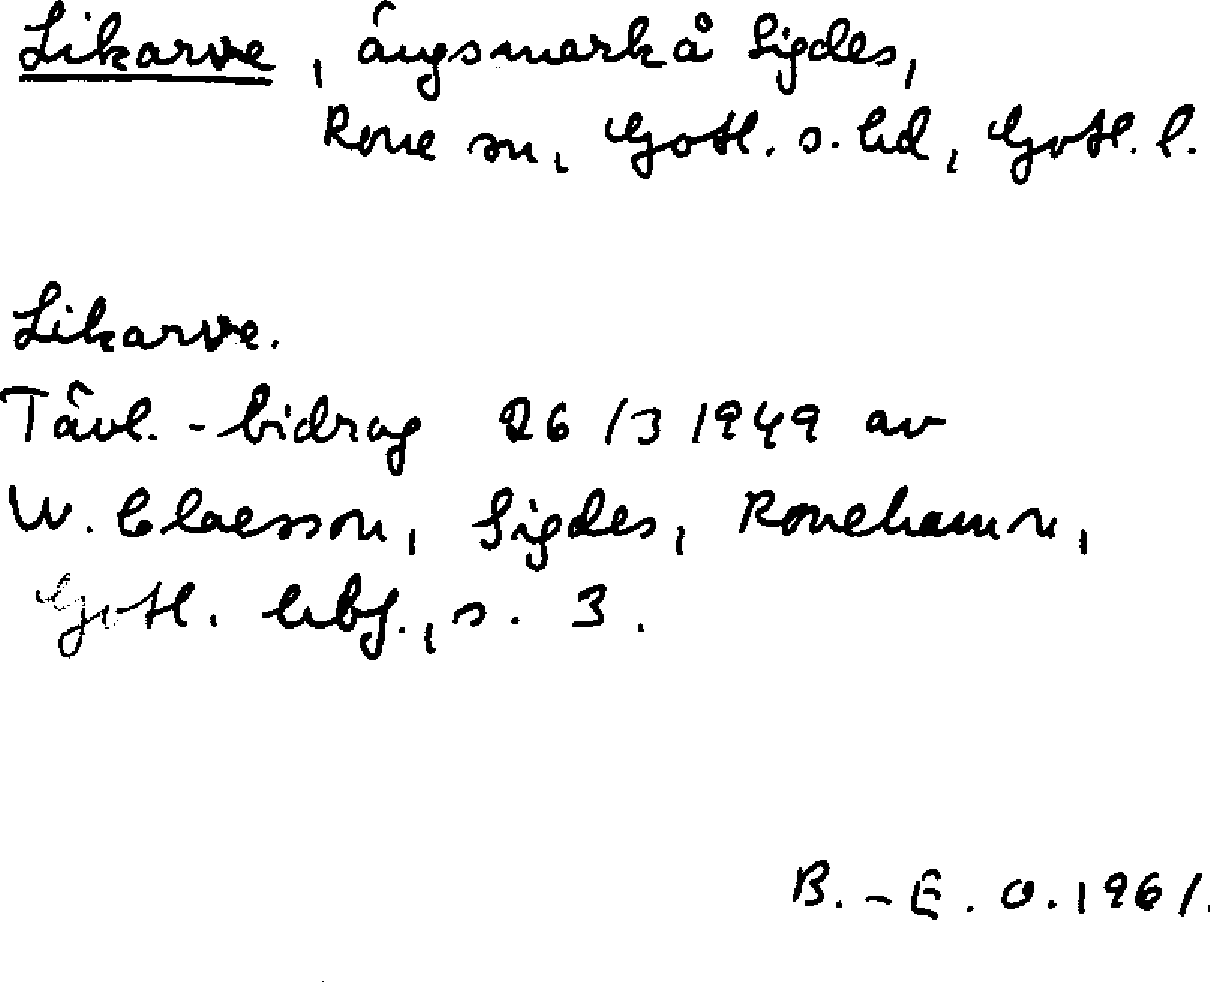 Likarve, ängsmark å Sigdes,
Rone sn, Gotl. s. hd, Gotl. l.
Likarve.
Tävl.-bidrag 26/3 1949 av
W. Claesson, Sigdes, Ronehamn,
Gotl. hbf., s. 3.
B.-E. O. 1961.